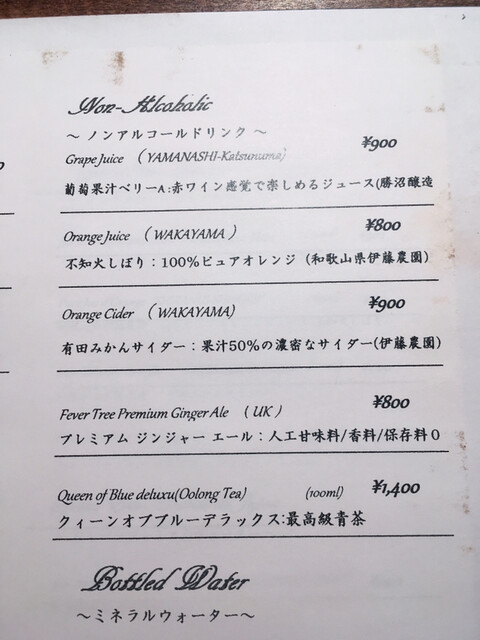 Non-Alcoholic
～ ノンアルコールドリンク ～
Grape Juice （YAMANASHI-Katsunuma） ¥900
葡萄果汁ベリーA:赤ワイン感覚で楽しめるジュース(勝沼醸造
Orange Juice （WAKAYAMA） ¥800
不知火しぼり：100%ピュアオレンジ（和歌山県伊藤農園）
Orange Cider （WAKAYAMA） ¥900
有田みかんサイダー：果汁50%の濃密なサイダー(伊藤農園)
Fever Tree Premium Ginger Ale （UK） ¥800
プレミアム ジンジャー エール：人工甘味料/香料/保存料０
Queen of Blue deluxu(Oolong Tea) (100ml) ¥1,400
クィーンオブブルーデラックス:最高級青茶
Bottled Water
～ミネラルウォーター～